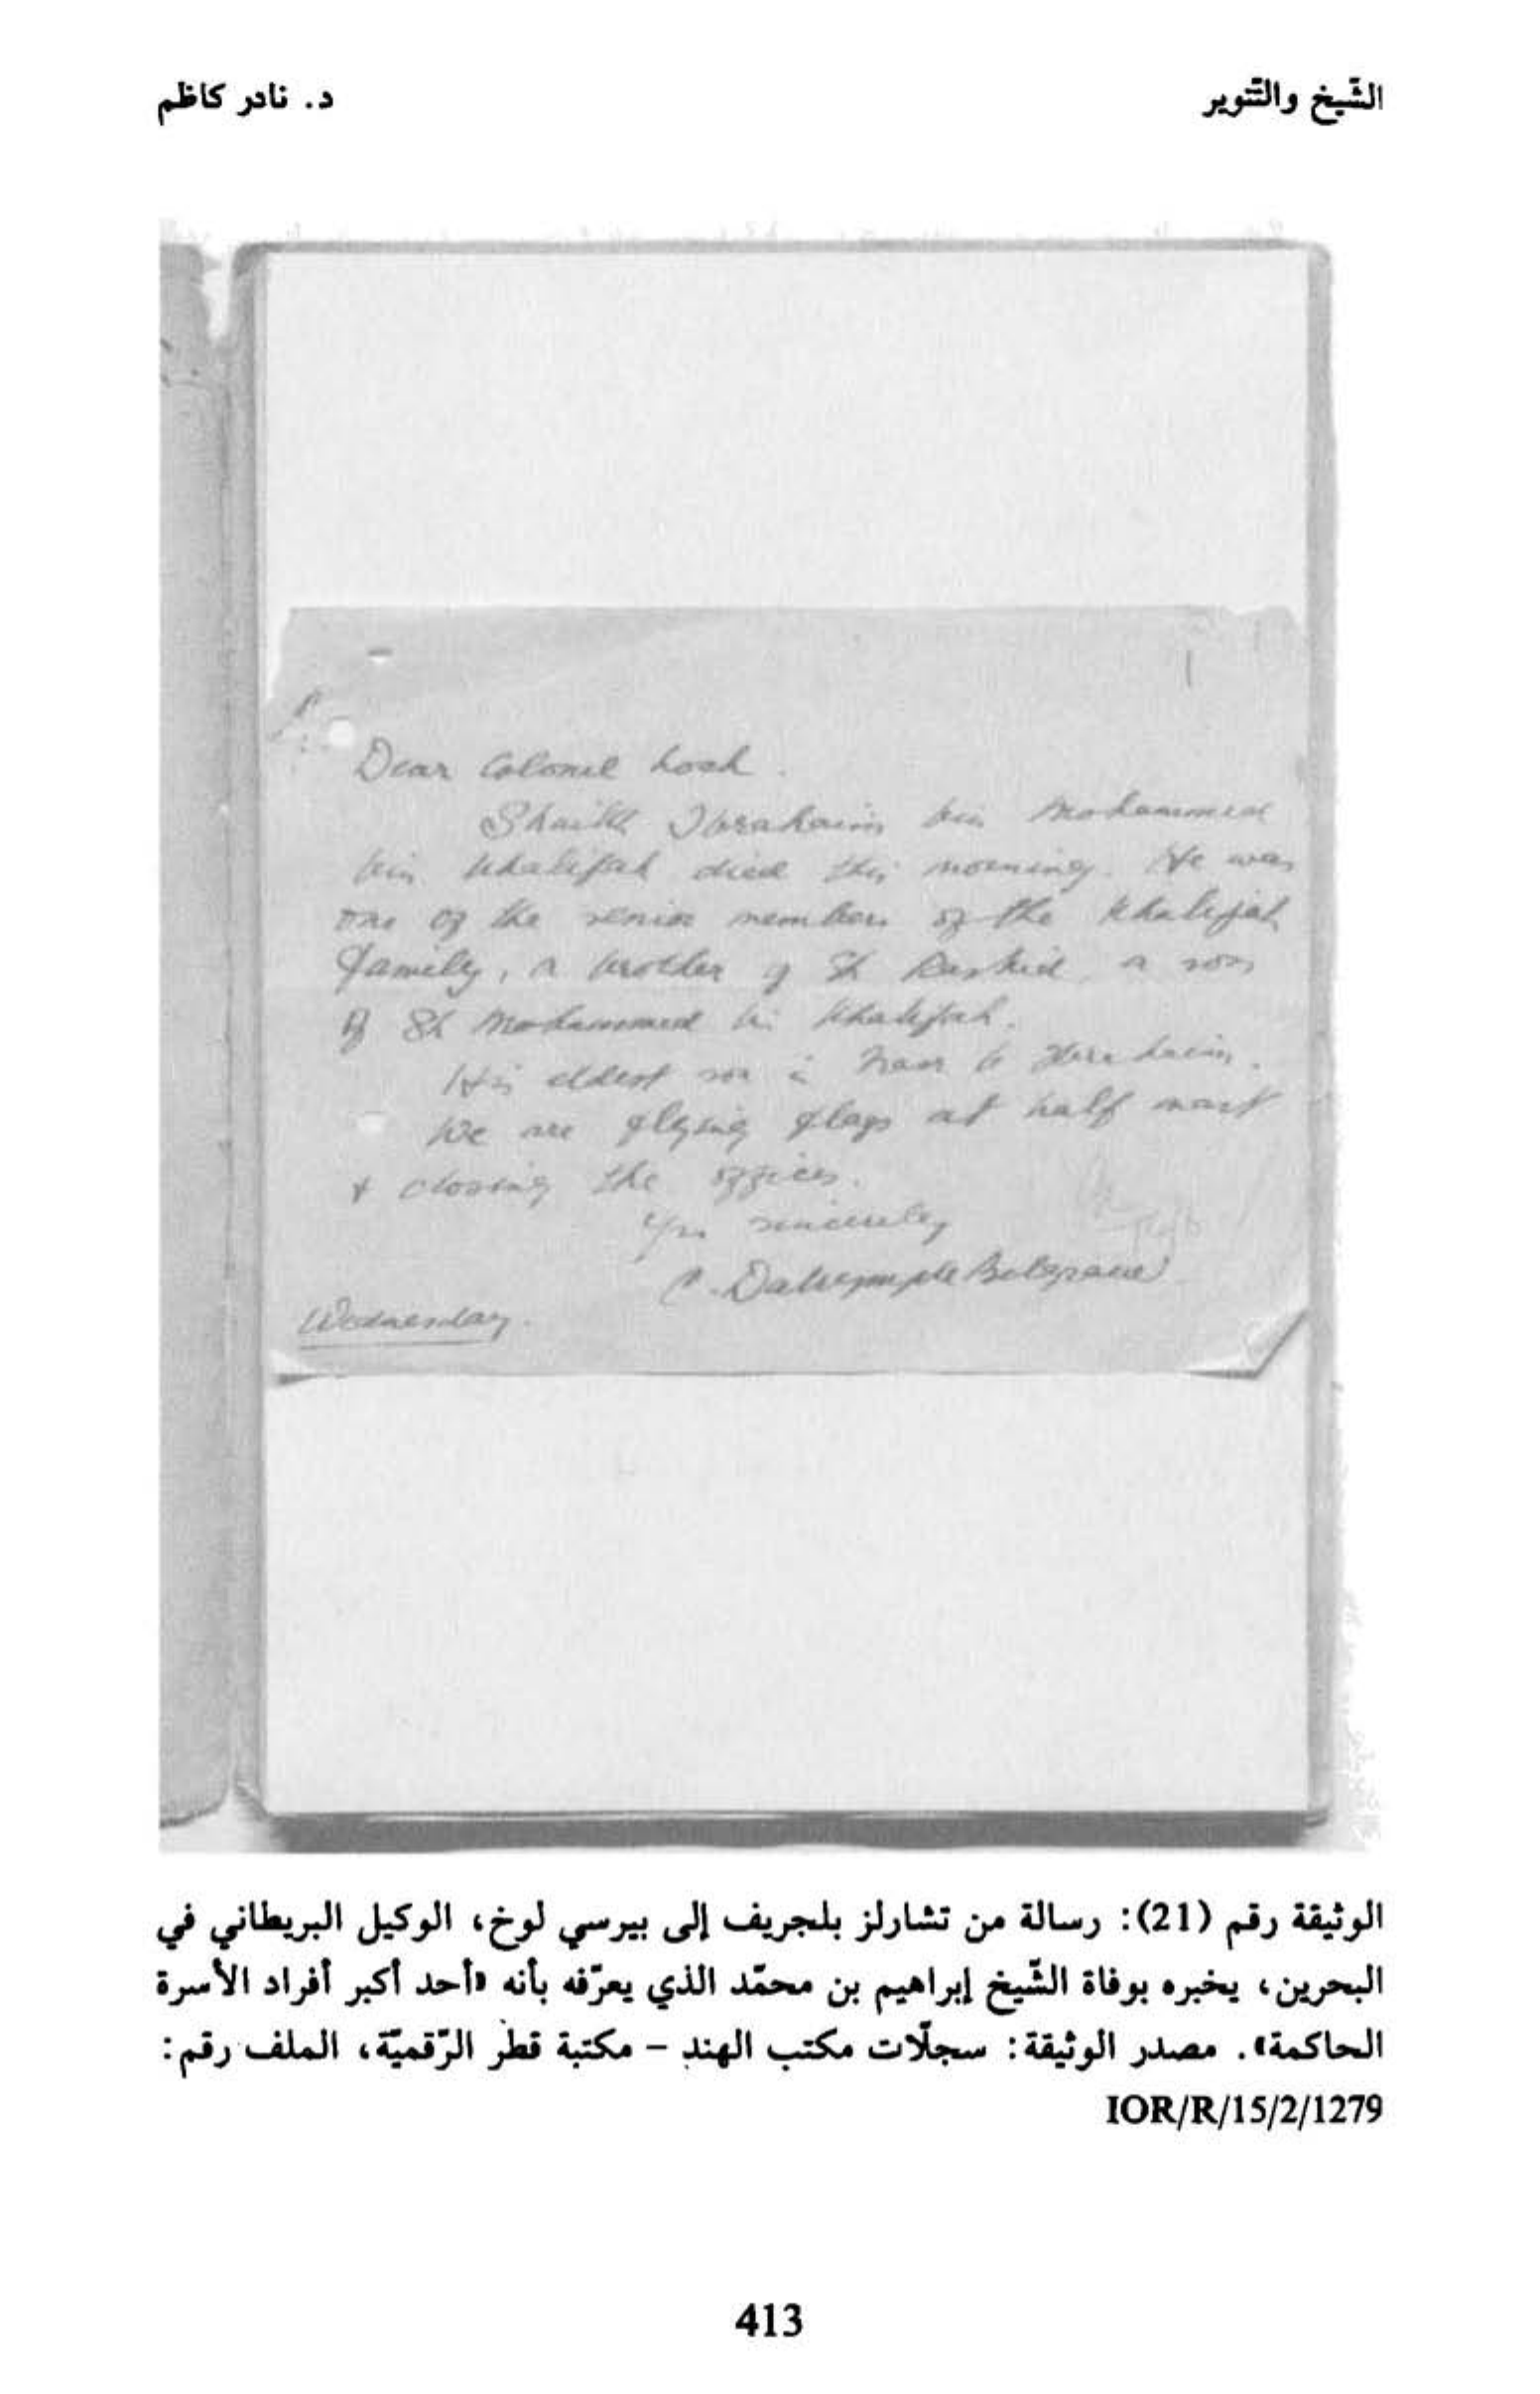 الشّيخ والتّنوير
د. نادر كاظم
Dear Colonel Loch.
Shaikh Ibrahaim bin Mohammed
bin Khalifah died this morning. He was
one of the senior members of the Khalifah
family, a brother of Sh Rashid, a son
of Sh Mohammed bin Khalifah.
His eldest son is
We are flying flags at half mast
& closing the offices.
Yrs sincerely
C. Dalrymple Belgrave
Wednesday.
الوثيقة رقم (21): رسالة من تشارلز بلجريف إلى بيرسي لوخ، الوكيل البريطاني في
البحرين، يخبره بوفاة الشّيخ إبراهيم بن محمّد الذي يعرّفه بأنه «أحد أكبر أفراد الأسرة
الحاكمة». مصدر الوثيقة: سجلّات مكتب الهند – مكتبة قطر الرّقميّة، الملف رقم:
IOR/R/15/2/1279
413